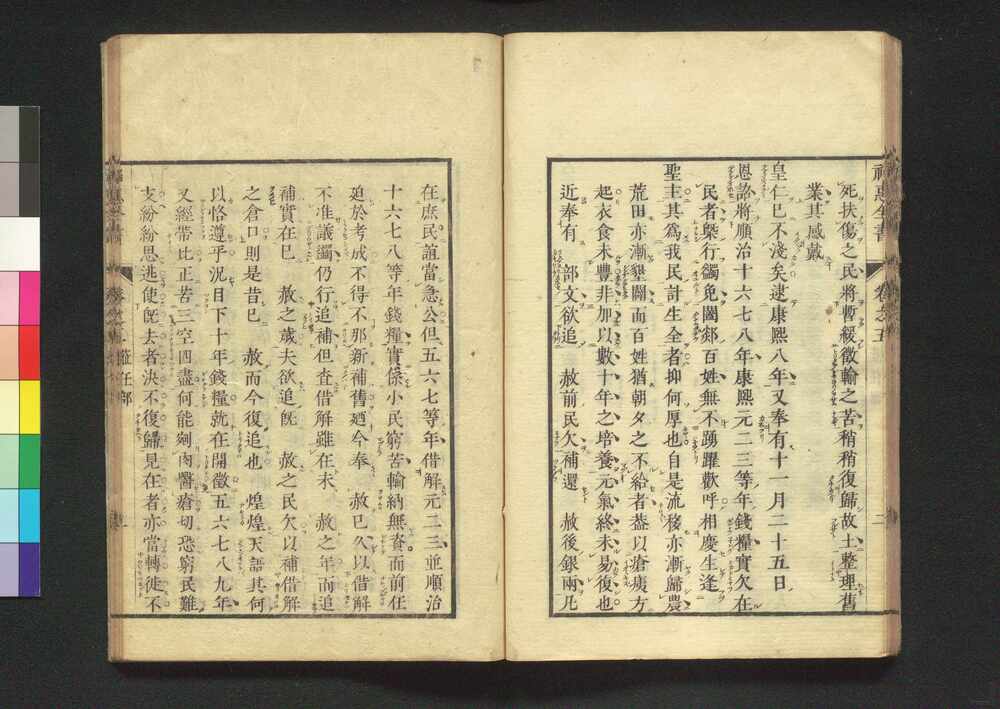 死扶傷之民將暫緩徵輸之苦稍稍復歸故土整理舊
業其感戴
皇仁已不淺矣逮康熙八年又奉有十一月二十五日
恩詔將順治十六七八年康熙元二三等年錢糧實欠在
民者槩行蠲免闔郯百姓無不踴躍歡呼相慶生逢
聖主其為我民計生全者抑何厚也自是流移亦漸歸農
荒田亦漸墾闢而百姓猶朝夕之不給者葢以瘡痍方
起衣食未豐非加以數十年之培養元氣終未易復也
近奉有 部文欲追 赦前民欠補還 赦後錄兩凡
在庶民誼當急公但五六七等年借解元二三並順治
十六七八等年錢糧實係小民窮苦輸納無資而前任
廹於考成不得不那新補舊廼今奉 赦已久以借解
不准議蠲仍行追補但查借解雖在未 赦之年而追
補實在已 赦之歲夫欲追旣 赦之民欠以補借解
之倉口則是昔已 赦而今復追也 煌煌天語其何
以恪遵乎況目下十年錢糧就在開徵五六七八九年
又經帶比正苦三空四盡何能剜肉醫瘡切恐窮民難
支紛紛思逃使旣去者決不復歸見在者亦當轉徙不
卷之五